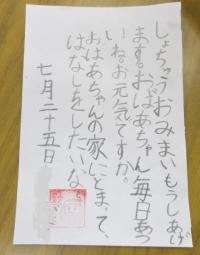 しょちゅうおみまいもうしあげ
ます。おばあちゃん毎日あつ
いね。お元気ですか。
おばあちゃんの家にとまって、
はなしをしたいな
七月二十五日